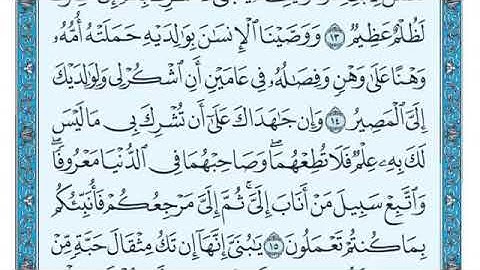 لَظُلْمٌ عَظِيمٌ ١٣ وَوَصَّيْنَا الْإِنسَٰنَ بِوَٰلِدَيْهِ حَمَلَتْهُ أُمُّهُۥ
وَهْنًا عَلَىٰ وَهْنٍ وَفِصَٰلُهُۥ فِي عَامَيْنِ أَنِ اشْكُرْ لِي وَلِوَٰلِدَيْكَ
إِلَيَّ الْمَصِيرُ ١٤ وَإِن جَٰهَدَاكَ عَلَىٰٓ أَن تُشْرِكَ بِي مَا لَيْسَ
لَكَ بِهِۦ عِلْمٌ فَلَا تُطِعْهُمَا ۖ وَصَاحِبْهُمَا فِي الدُّنْيَا مَعْرُوفًا ۖ
وَاتَّبِعْ سَبِيلَ مَنْ أَنَابَ إِلَيَّ ۚ ثُمَّ إِلَيَّ مَرْجِعُكُمْ فَأُنَبِّئُكُم
بِمَا كُنتُمْ تَعْمَلُونَ ١٥ يَٰبُنَيَّ إِنَّهَآ إِن تَكُ مِثْقَالَ حَبَّةٍ مِّنْ